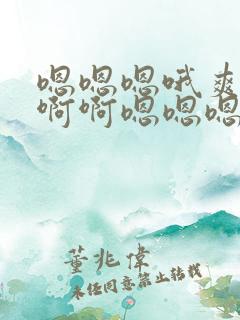 嗯嗯嗯哦爽
啊啊嗯嗯嗯
董兆伟
未经同意禁止转载